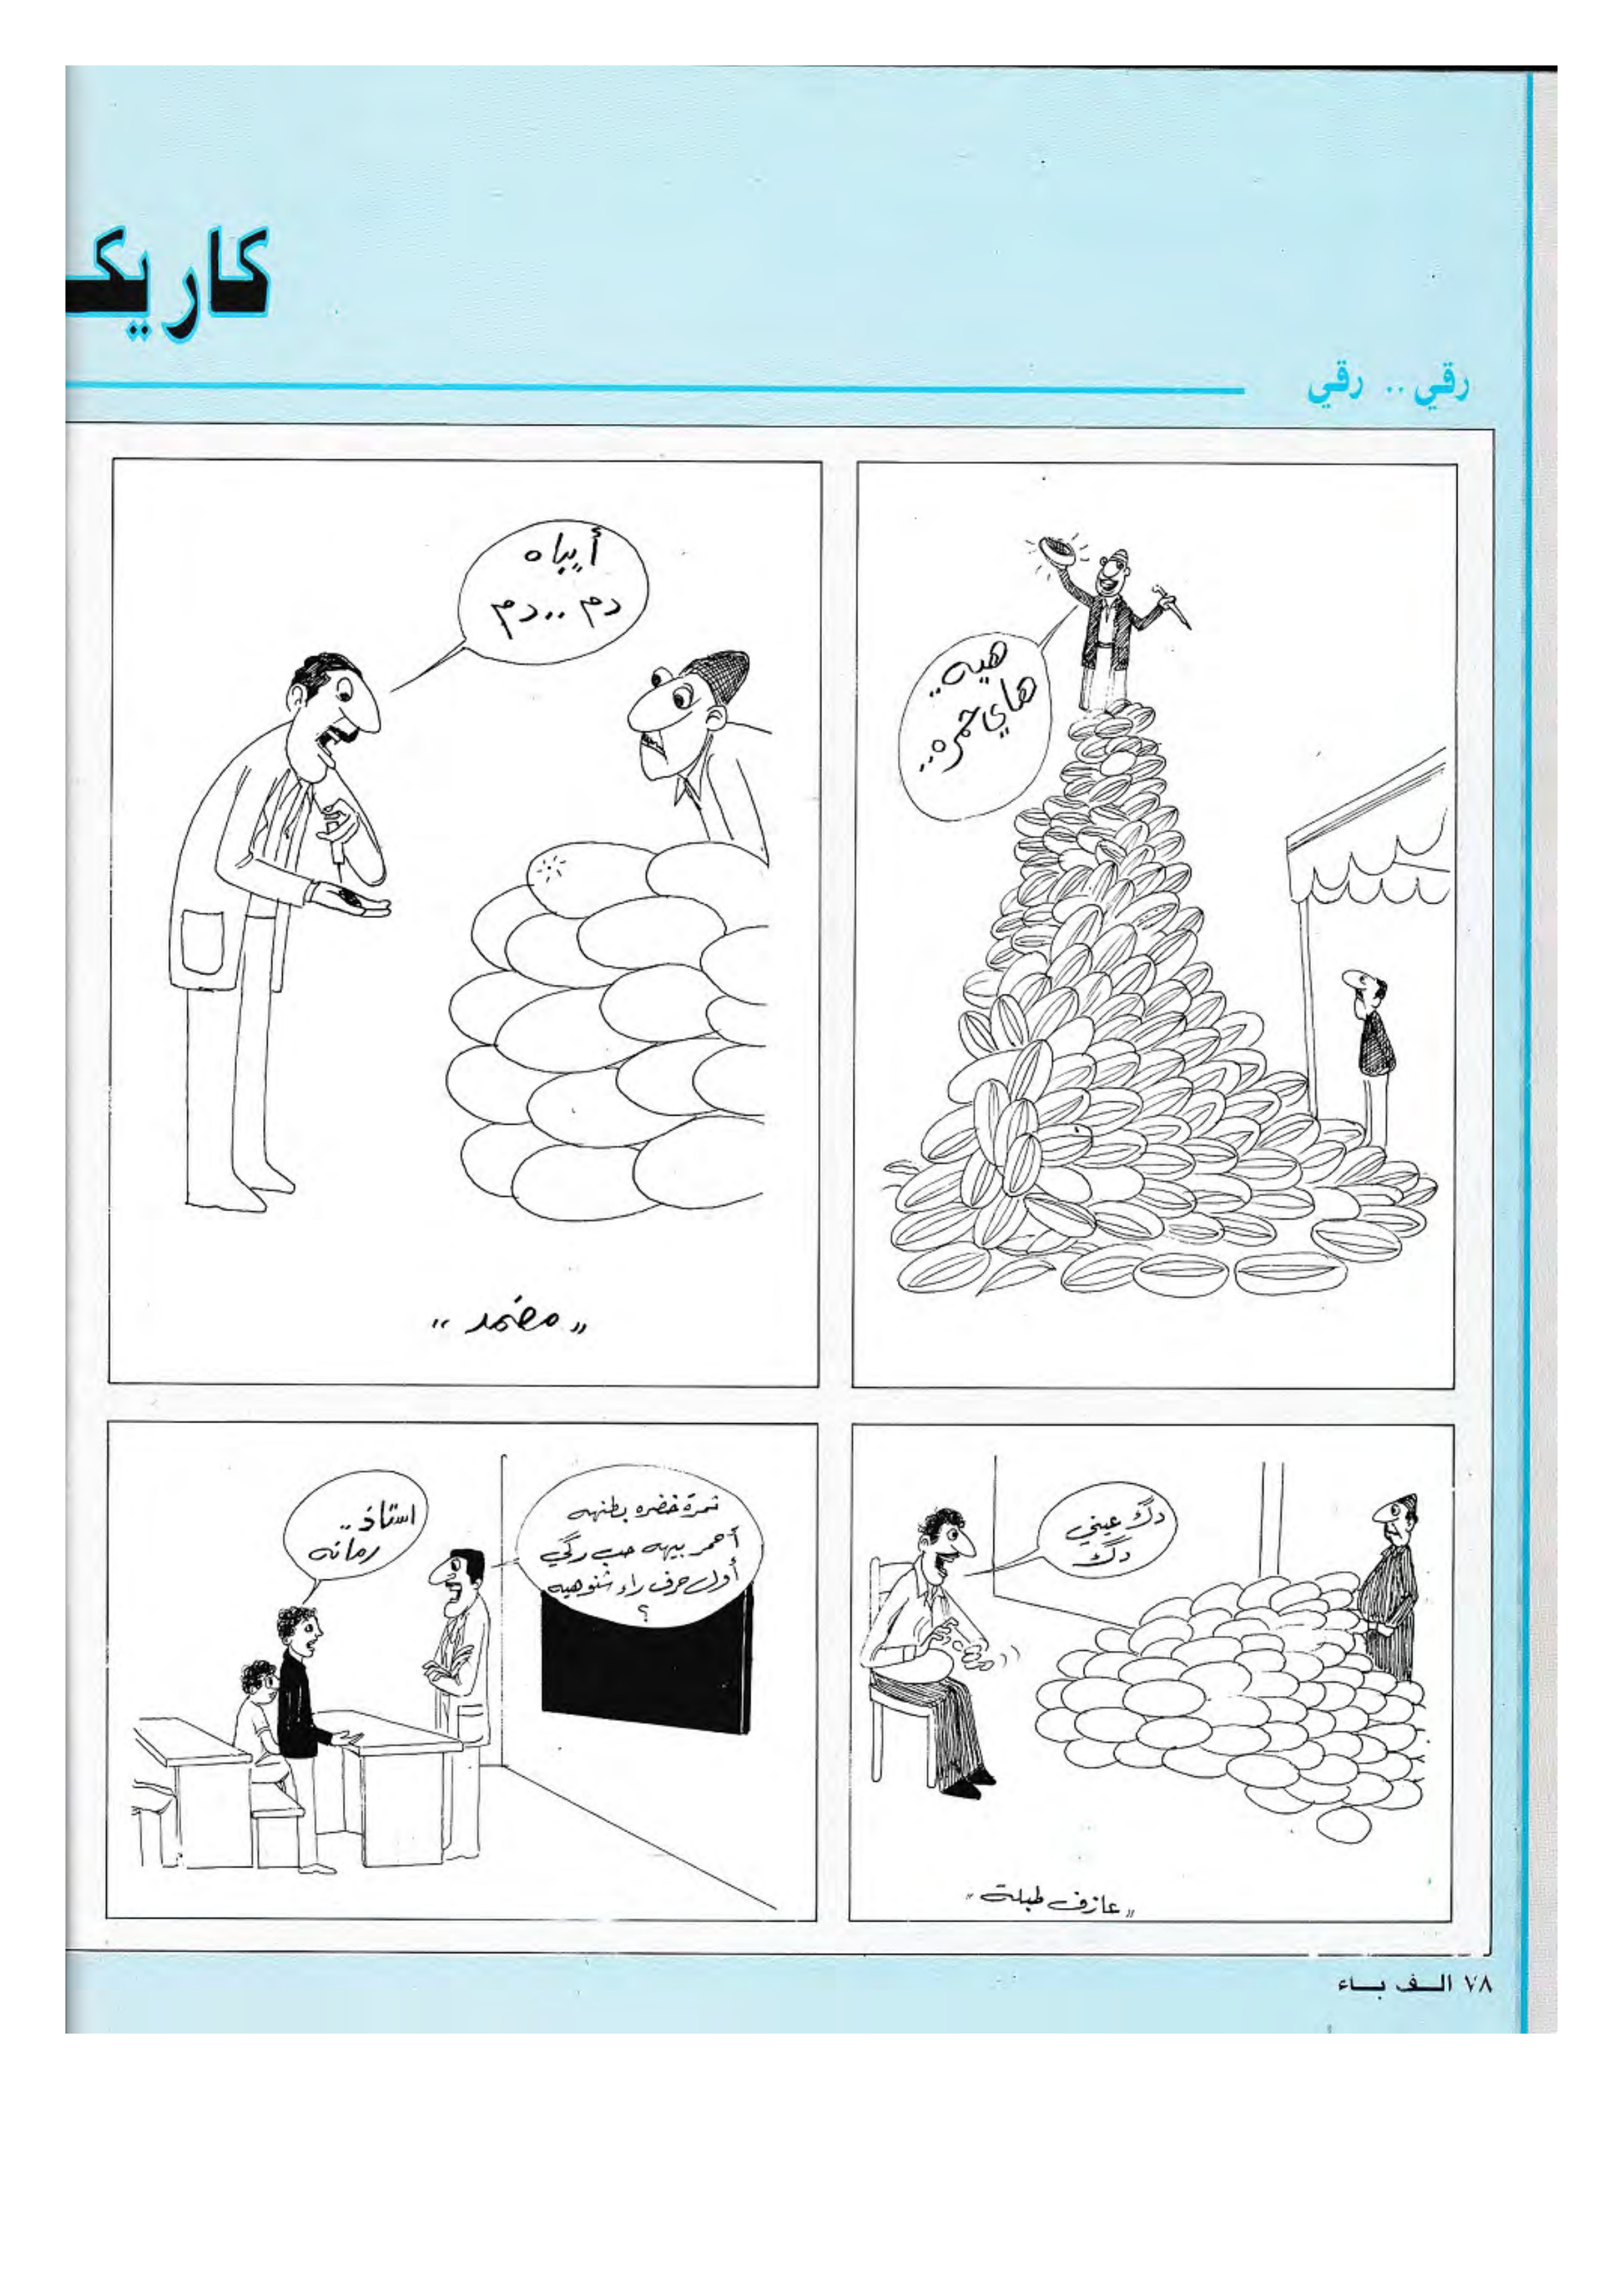 كاريكـ
رقي .. رقي
هيه..
هاي حمره..
أيباه
دم .. دم
"مضمد"
دگ عيني
دگ
"عازف طبلة"
ثمرة خضره بطنهه
أحمر بيهه حب رگي
أول حرف راء شنوهيه
؟
استاذ ..
رمانه
٧٨ الـف بـاء